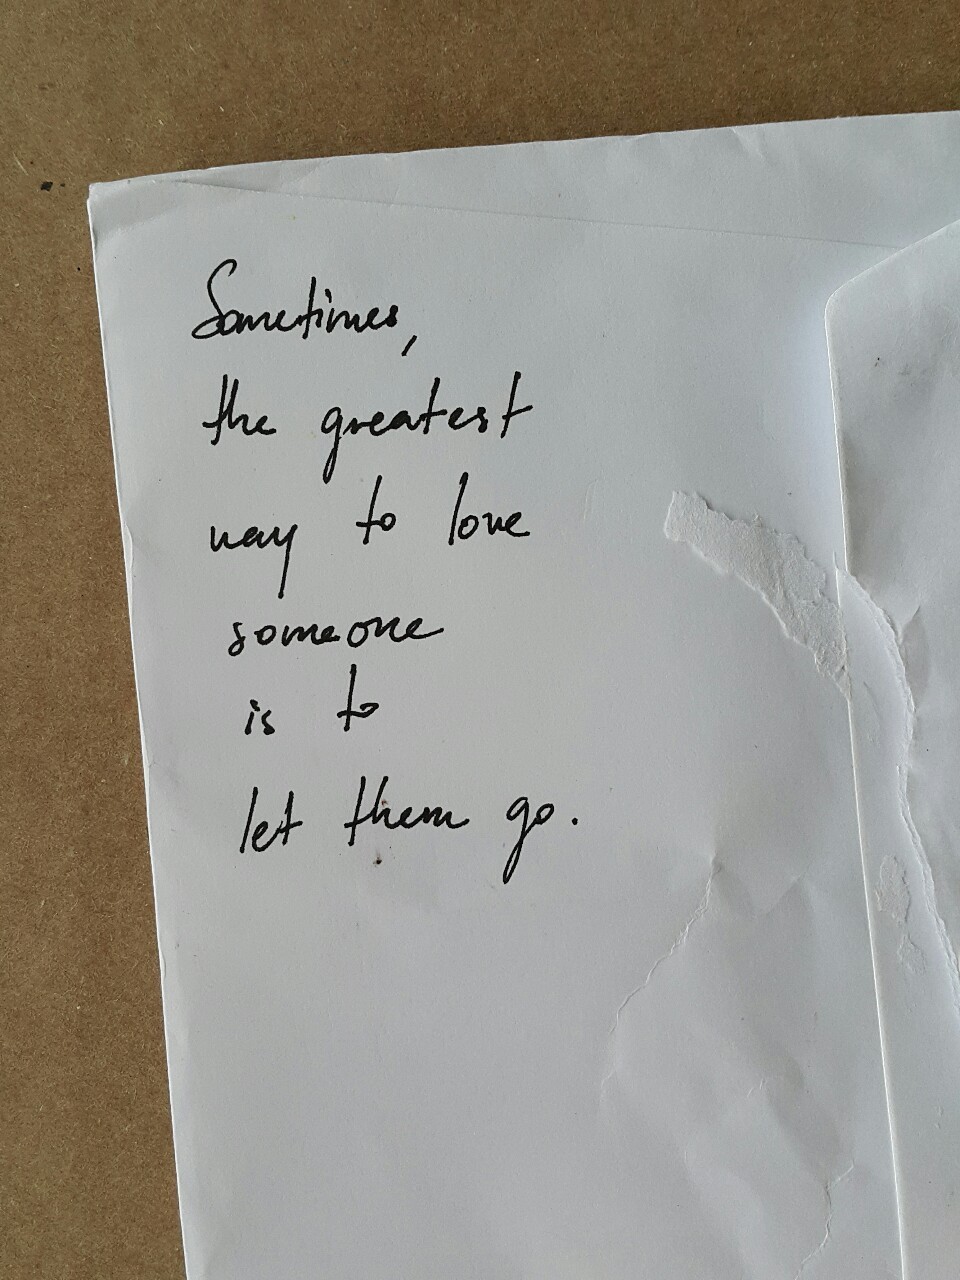 Sometimes,
the greatest
way to love
someone
is to
let them go.